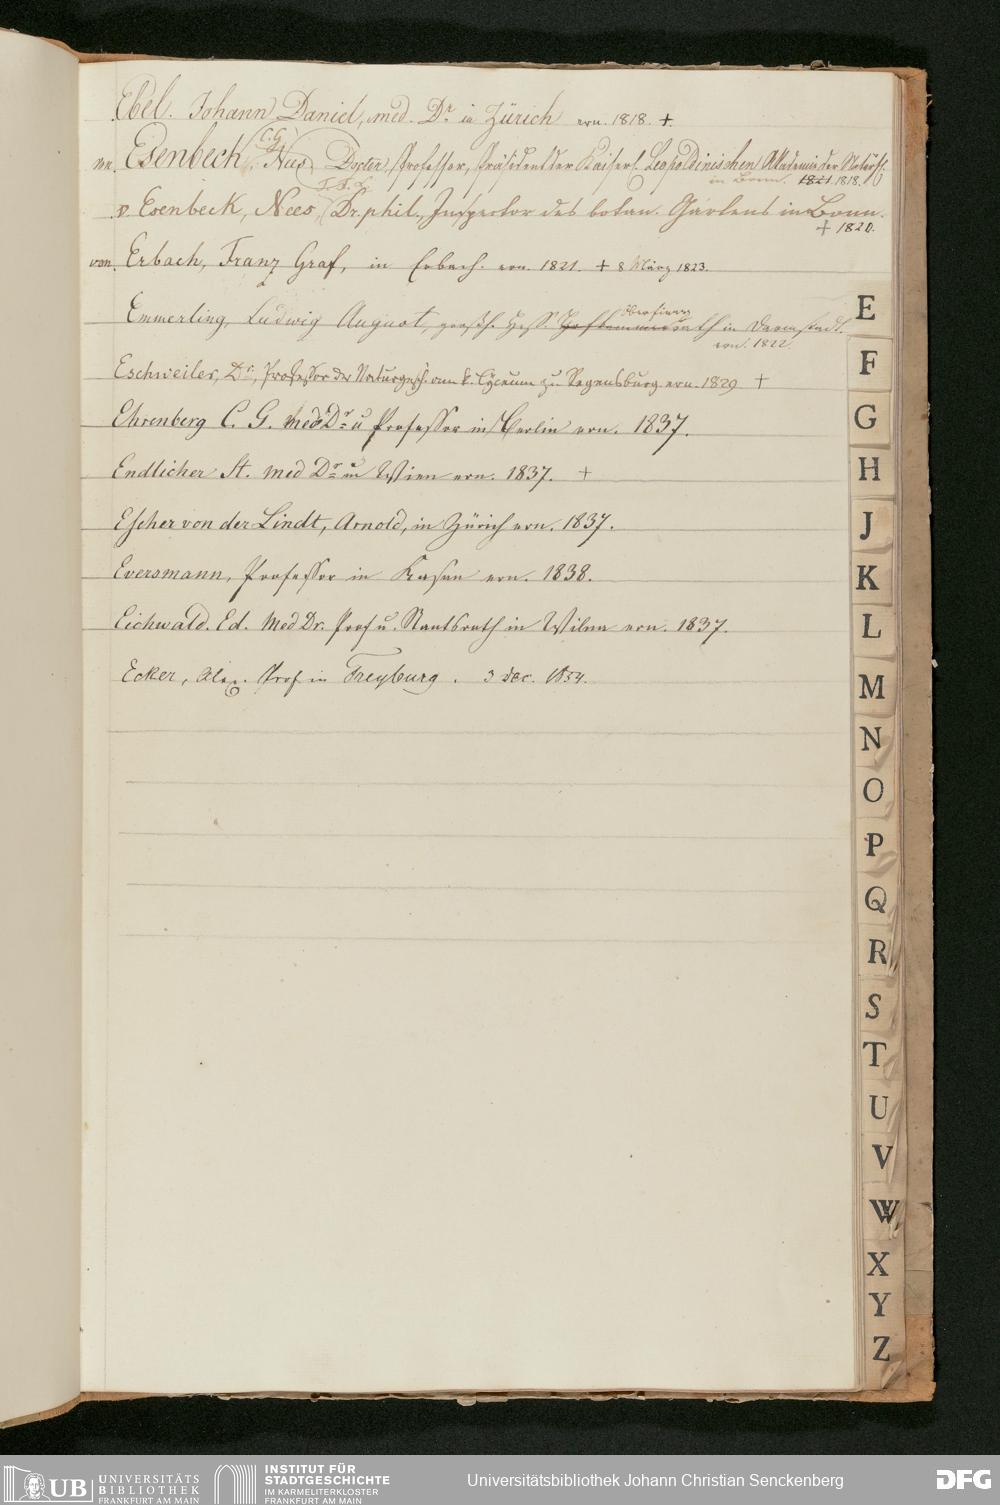 Ebel. Johann Daniel, med. Dr. in Zürich ern. 1818. +
C. G.
von. Esenbeck, Nees Doctor, Professor, Präsident der Kaiserl. Leopoldinischen Akademie der Naturf.
in Bonn. 1821. 1818.
v. Esenbeck, Nees, Dr. phil., Inspector des botan. Gartens in Bonn.
+ 1820.
von. Erbach, Franz Graf, in Erbach. ern. 1821. + 8 März 1823.
Oberfinanz
Emmerling, Ludwig August, großh. Hess. Hofkammerrath in Darmstadt.
ern. 1822.
Eschweiler, Dr., Professor der Naturgesch. am k. Lyceum zu Regensburg ern. 1829 +
Ehrenberg C. G. med Dr u Professor in Berlin ern. 1837.
Endlicher St. med Dr in Wien ern. 1837. +
Escher von der Lindt, Arnold, in Zürich ern. 1837.
Eversmann, Professor in Kasan ern. 1838.
Eichwald. Ed. Med Dr. Prof u. Staatsrath in Wilna ern. 1837.
Ecker, Alex. Prof in Freyburg. 3 dec. 1854.
E
F
G
H
J
K
L
M
N
O
P
Q
R
S
T
U
V
W
X
Y
Z
UB UNIVERSITÄTS
BIBLIOTHEK
FRANKFURT AM MAIN
INSTITUT FÜR
STADTGESCHICHTE
IM KARMELITERKLOSTER
FRANKFURT AM MAIN
Universitätsbibliothek Johann Christian Senckenberg
DFG